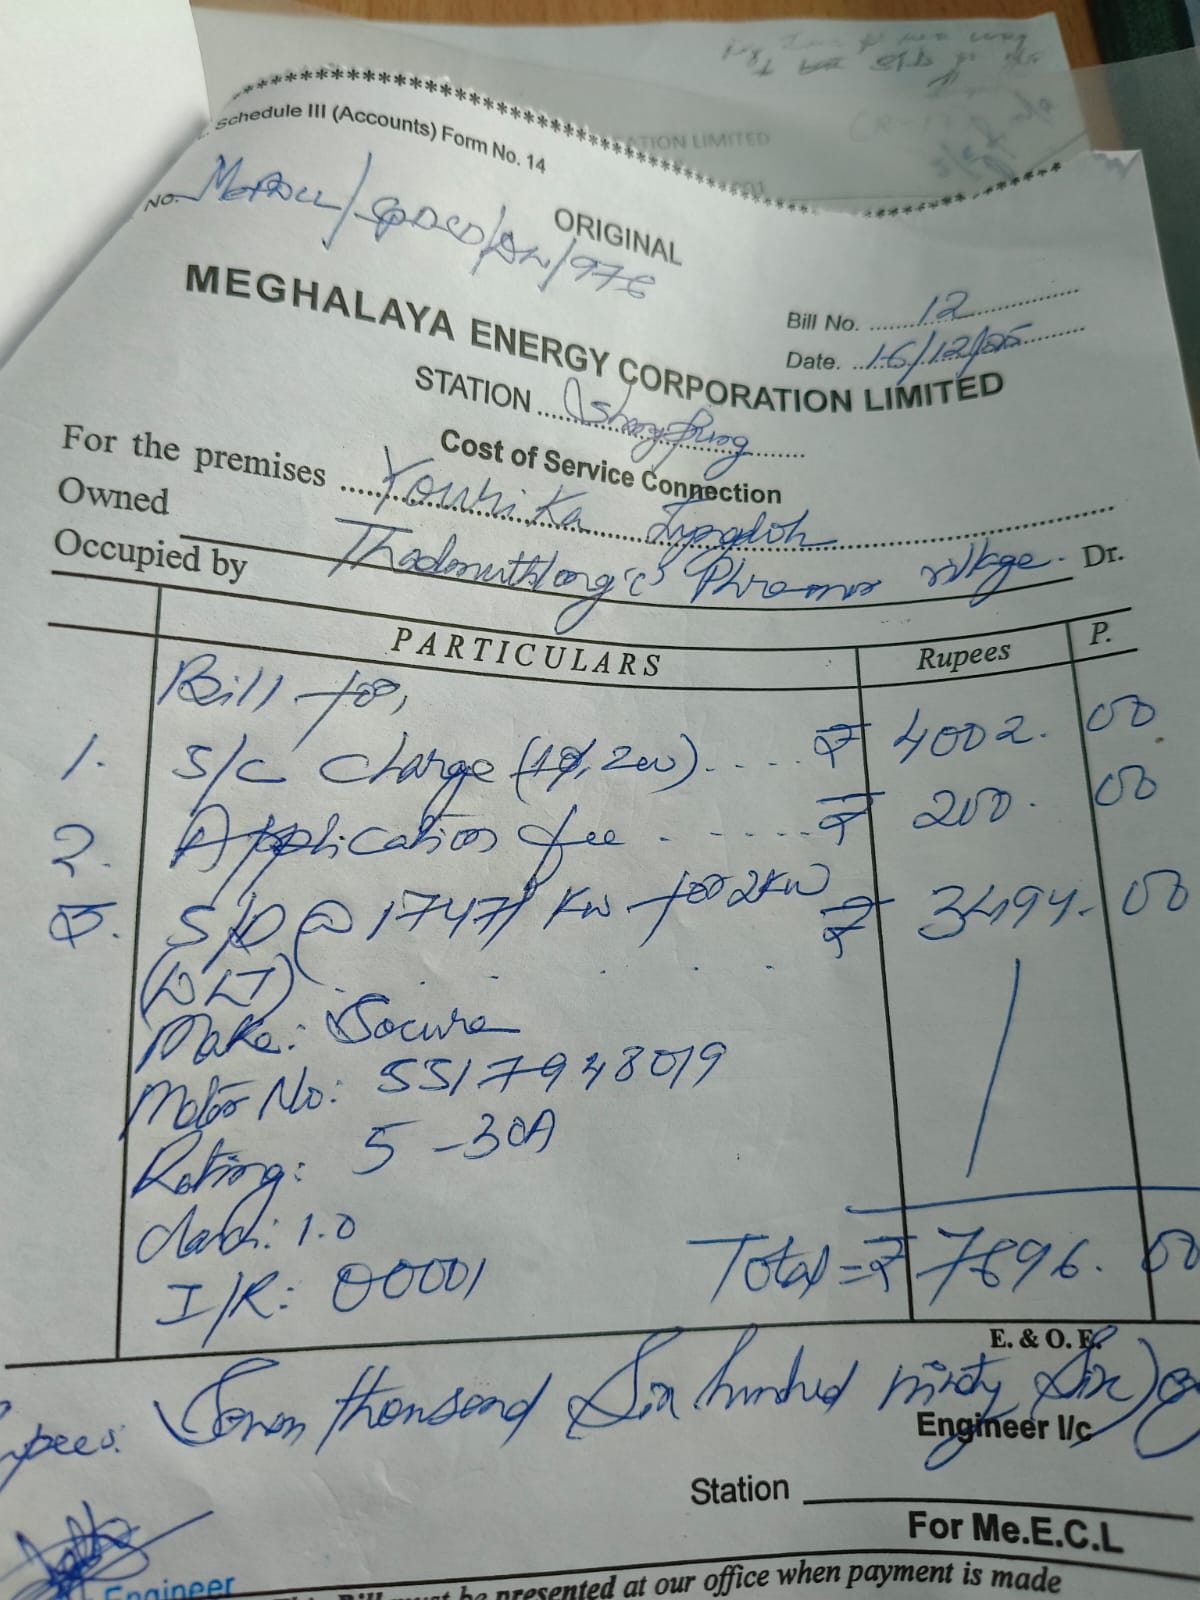 Schedule III (Accounts) Form No. 14
ATION LIMITED
ORIGINAL
No. MePDCL/ /976
Bill No. 12
Date. 16/12/25
MEGHALAYA ENERGY CORPORATION LIMITED
STATION
Cost of Service Connection
For the premises Lyngdoh
Owned
Occupied by village. Dr.
PARTICULARS Rupees P.
Bill for,
1. S/C charge (1φ, 2w).... ₹ 4002. 00
2. Application fee ...... ₹ 200. 00
3. S/D @ 1747/ Kw for 2Kw ₹ 3494. 00
(DLT)
Make: Secure
Meter No: SS17948019
Rating: 5-30A
Class: 1.0
I/R: 00001
Total = ₹ 7696. 00
E. & O. E.
upees: Seven thousand Six hundred ninety Six)
Engineer I/c
Station
For Me.E.C.L
Engineer
Bill must be presented at our office when payment is made